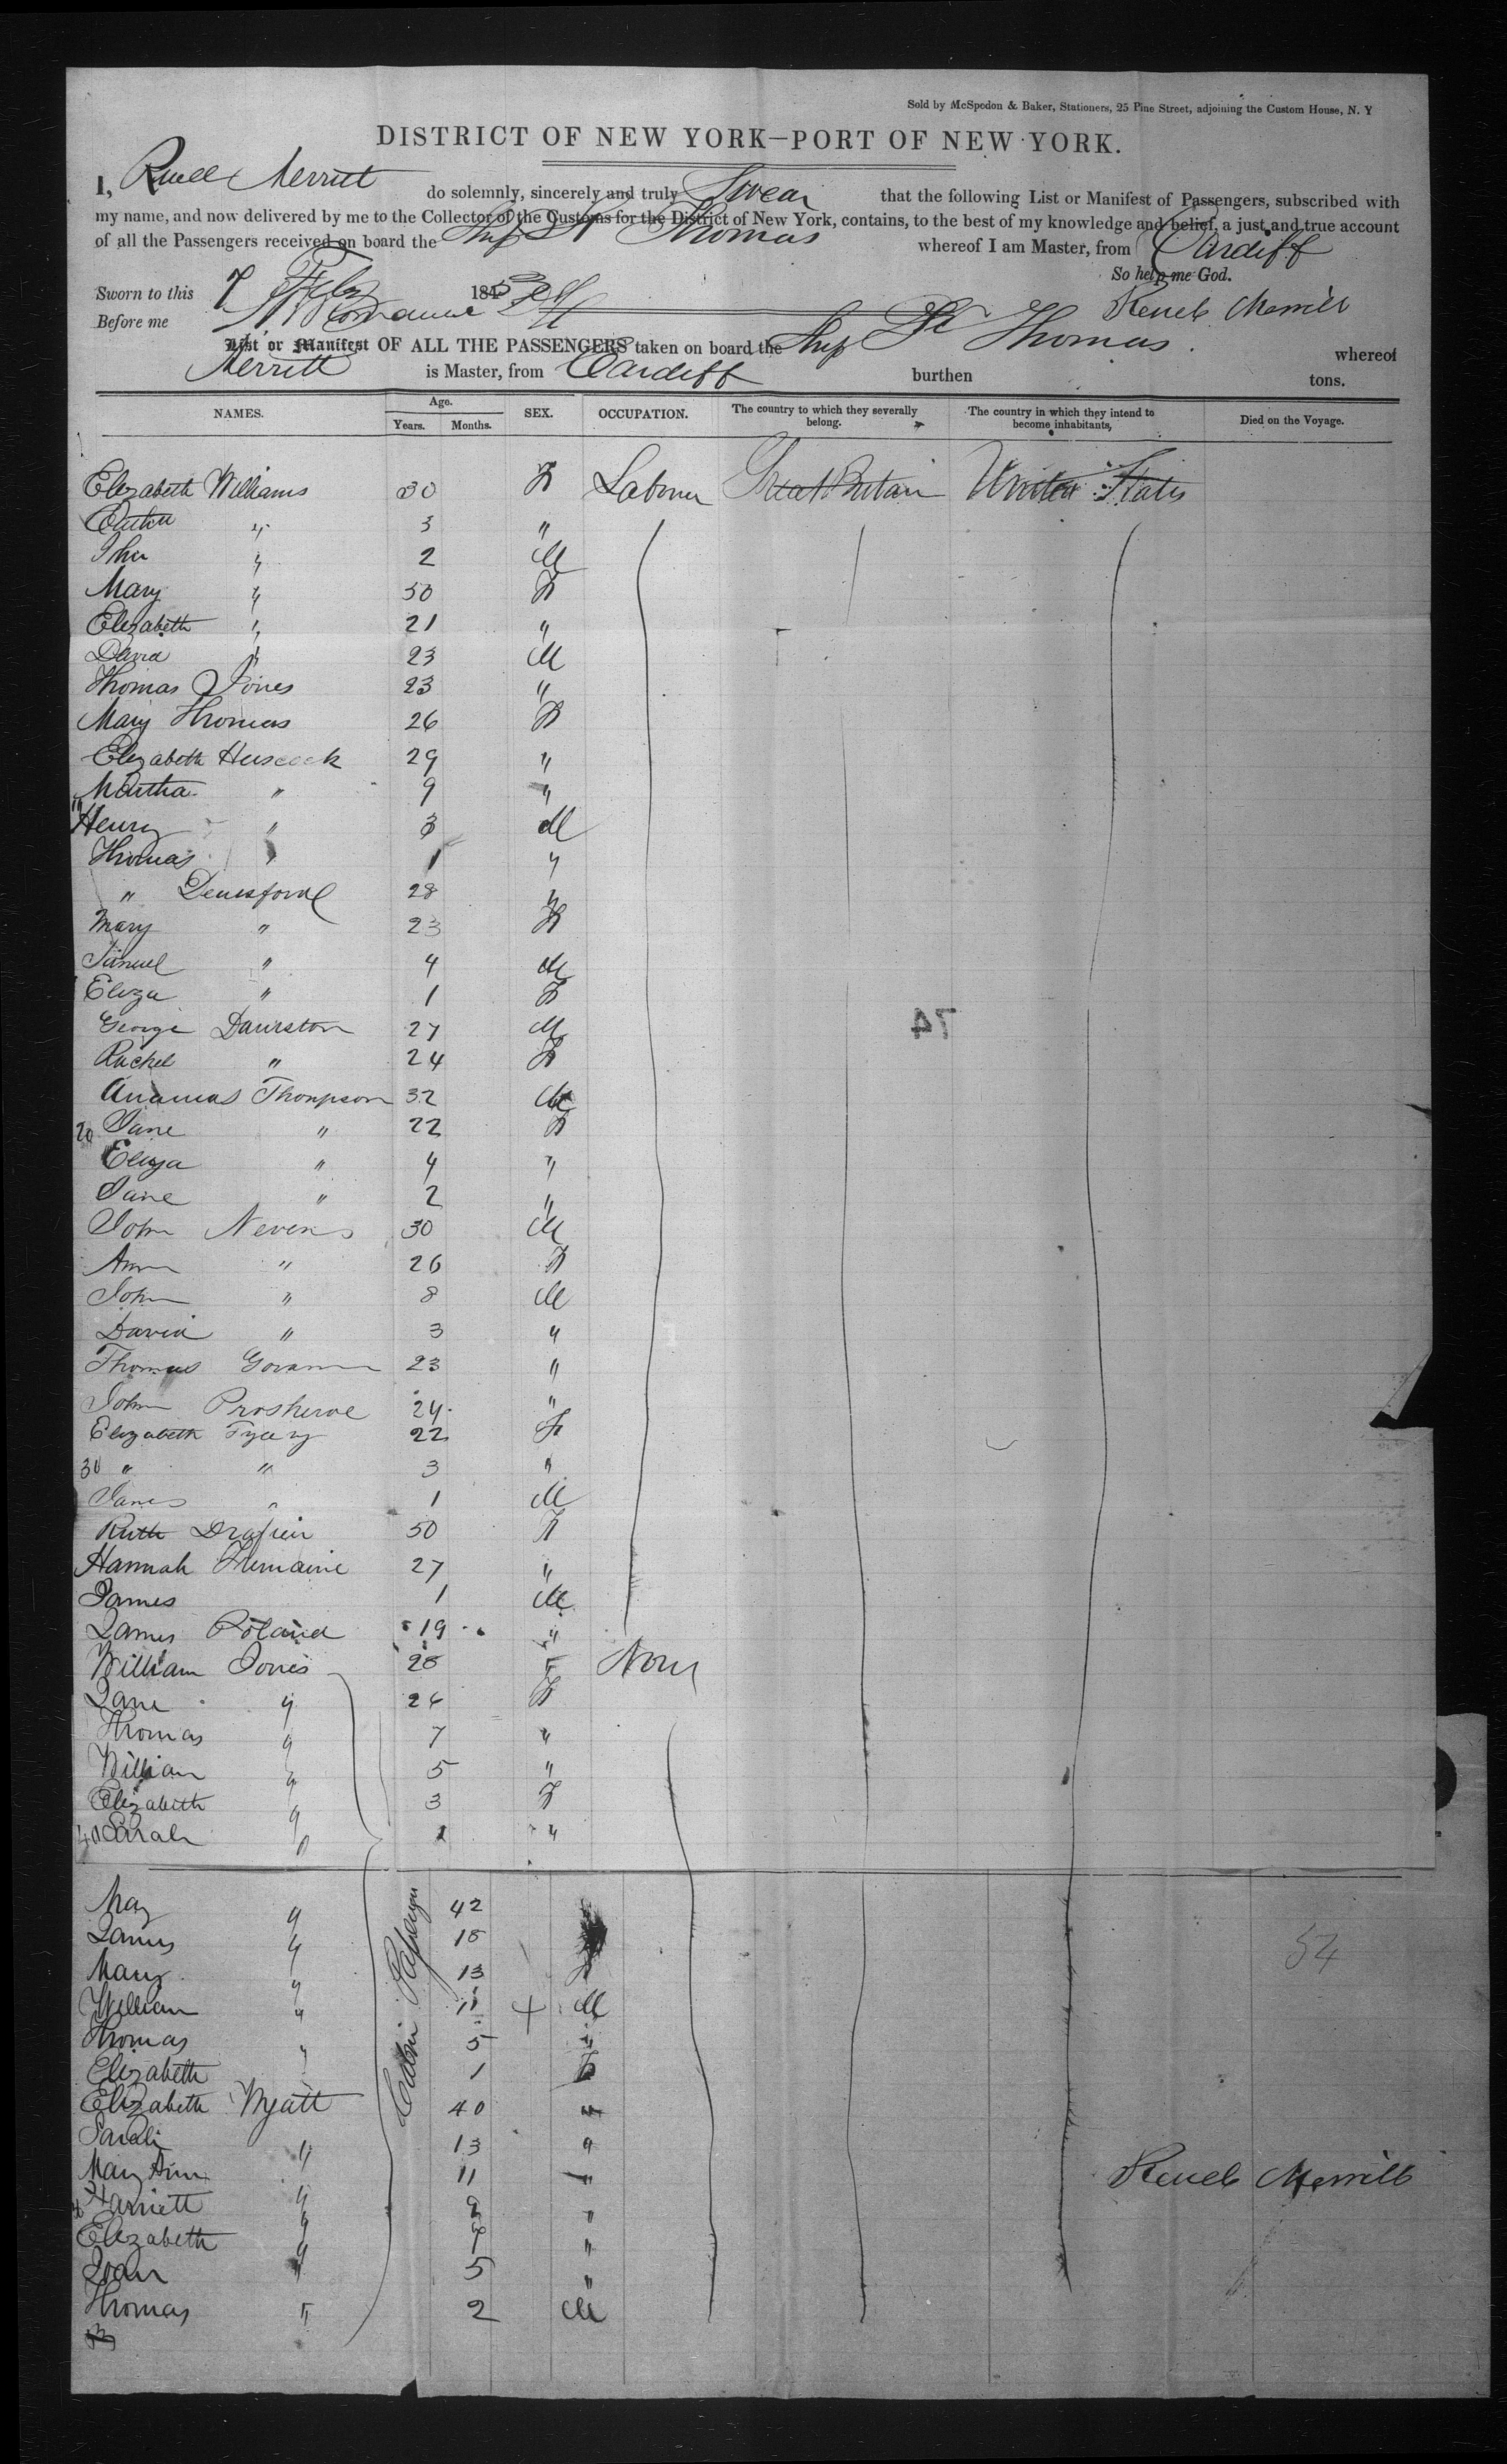 Sold by McSpedon & Baker, Stationers, 25 Pine Street, adjoining the Custom House, N. Y
DISTRICT OF NEW YORK—PORT OF NEW YORK.
I, Ruell Merritt do solemnly, sincerely and truly Swear that the following List or Manifest of Passengers, subscribed with
my name, and now delivered by me to the Collector of the Customs for the District of New York, contains, to the best of my knowledge and belief, a just and true account
of all the Passengers received on board the Ship St Thomas whereof I am Master, from Cardiff
So help me God.
Sworn to this 7 Feby 185
Before me
Merrill
List or Manifest OF ALL THE PASSENGERS taken on board the Ship St Thomas whereof
Merritt is Master, from Cardiff burthen tons.
NAMES. Age. Years. Months. SEX. OCCUPATION. The country to which they severally belong. The country in which they intend to become inhabitants, Died on the Voyage.
Elizabeth Williams 30 F Labourer Great Britain United States
" 3 "
John " 2 M
Mary " 50 F
Elizabeth " 21 "
David " 23 M
Thomas Jones 23 "
Mary Thomas 26 F
Elizabeth Huscock 29 "
Martha " 9 "
Henry " 3 M
Thomas " 1 "
" 28 "
Mary " 23 F
Samuel " 4 M
Eliza " 1 F
George 27 M
Rachel " 24 F
Ananias Thonpson 32 M
20 Jane " 22 F
Eliza " 4 "
Jane " 2 "
John Nevens 30 M
Ann " 26 F
John " 8 M
David " 3 "
Thomas 23 "
John Prosheroe 24 "
Elizabeth 22 F
30 " " 3 "
James " 1 M
Ruth 50 F
Hannah 27 "
James 1 M
James 19 "
William Jones 28 " None
Jane " 26 F
Thomas " 7 "
William " 5 "
Elizabeth " 3 F
40 Sarah " 1 "
74
Cabin Passenger
May " 42
James " 18
Mary " 13 F
William " 11 + M
Thomas " 5 "
Elizabeth " 1 F
Elizabeth Wyatt 40 "
Sarah " 13 "
Mary Ann " 11 "
Harriett " 9 "
Elizabeth " 7 "
Joan " 5 "
Thomas " 2 M
54
Merrill